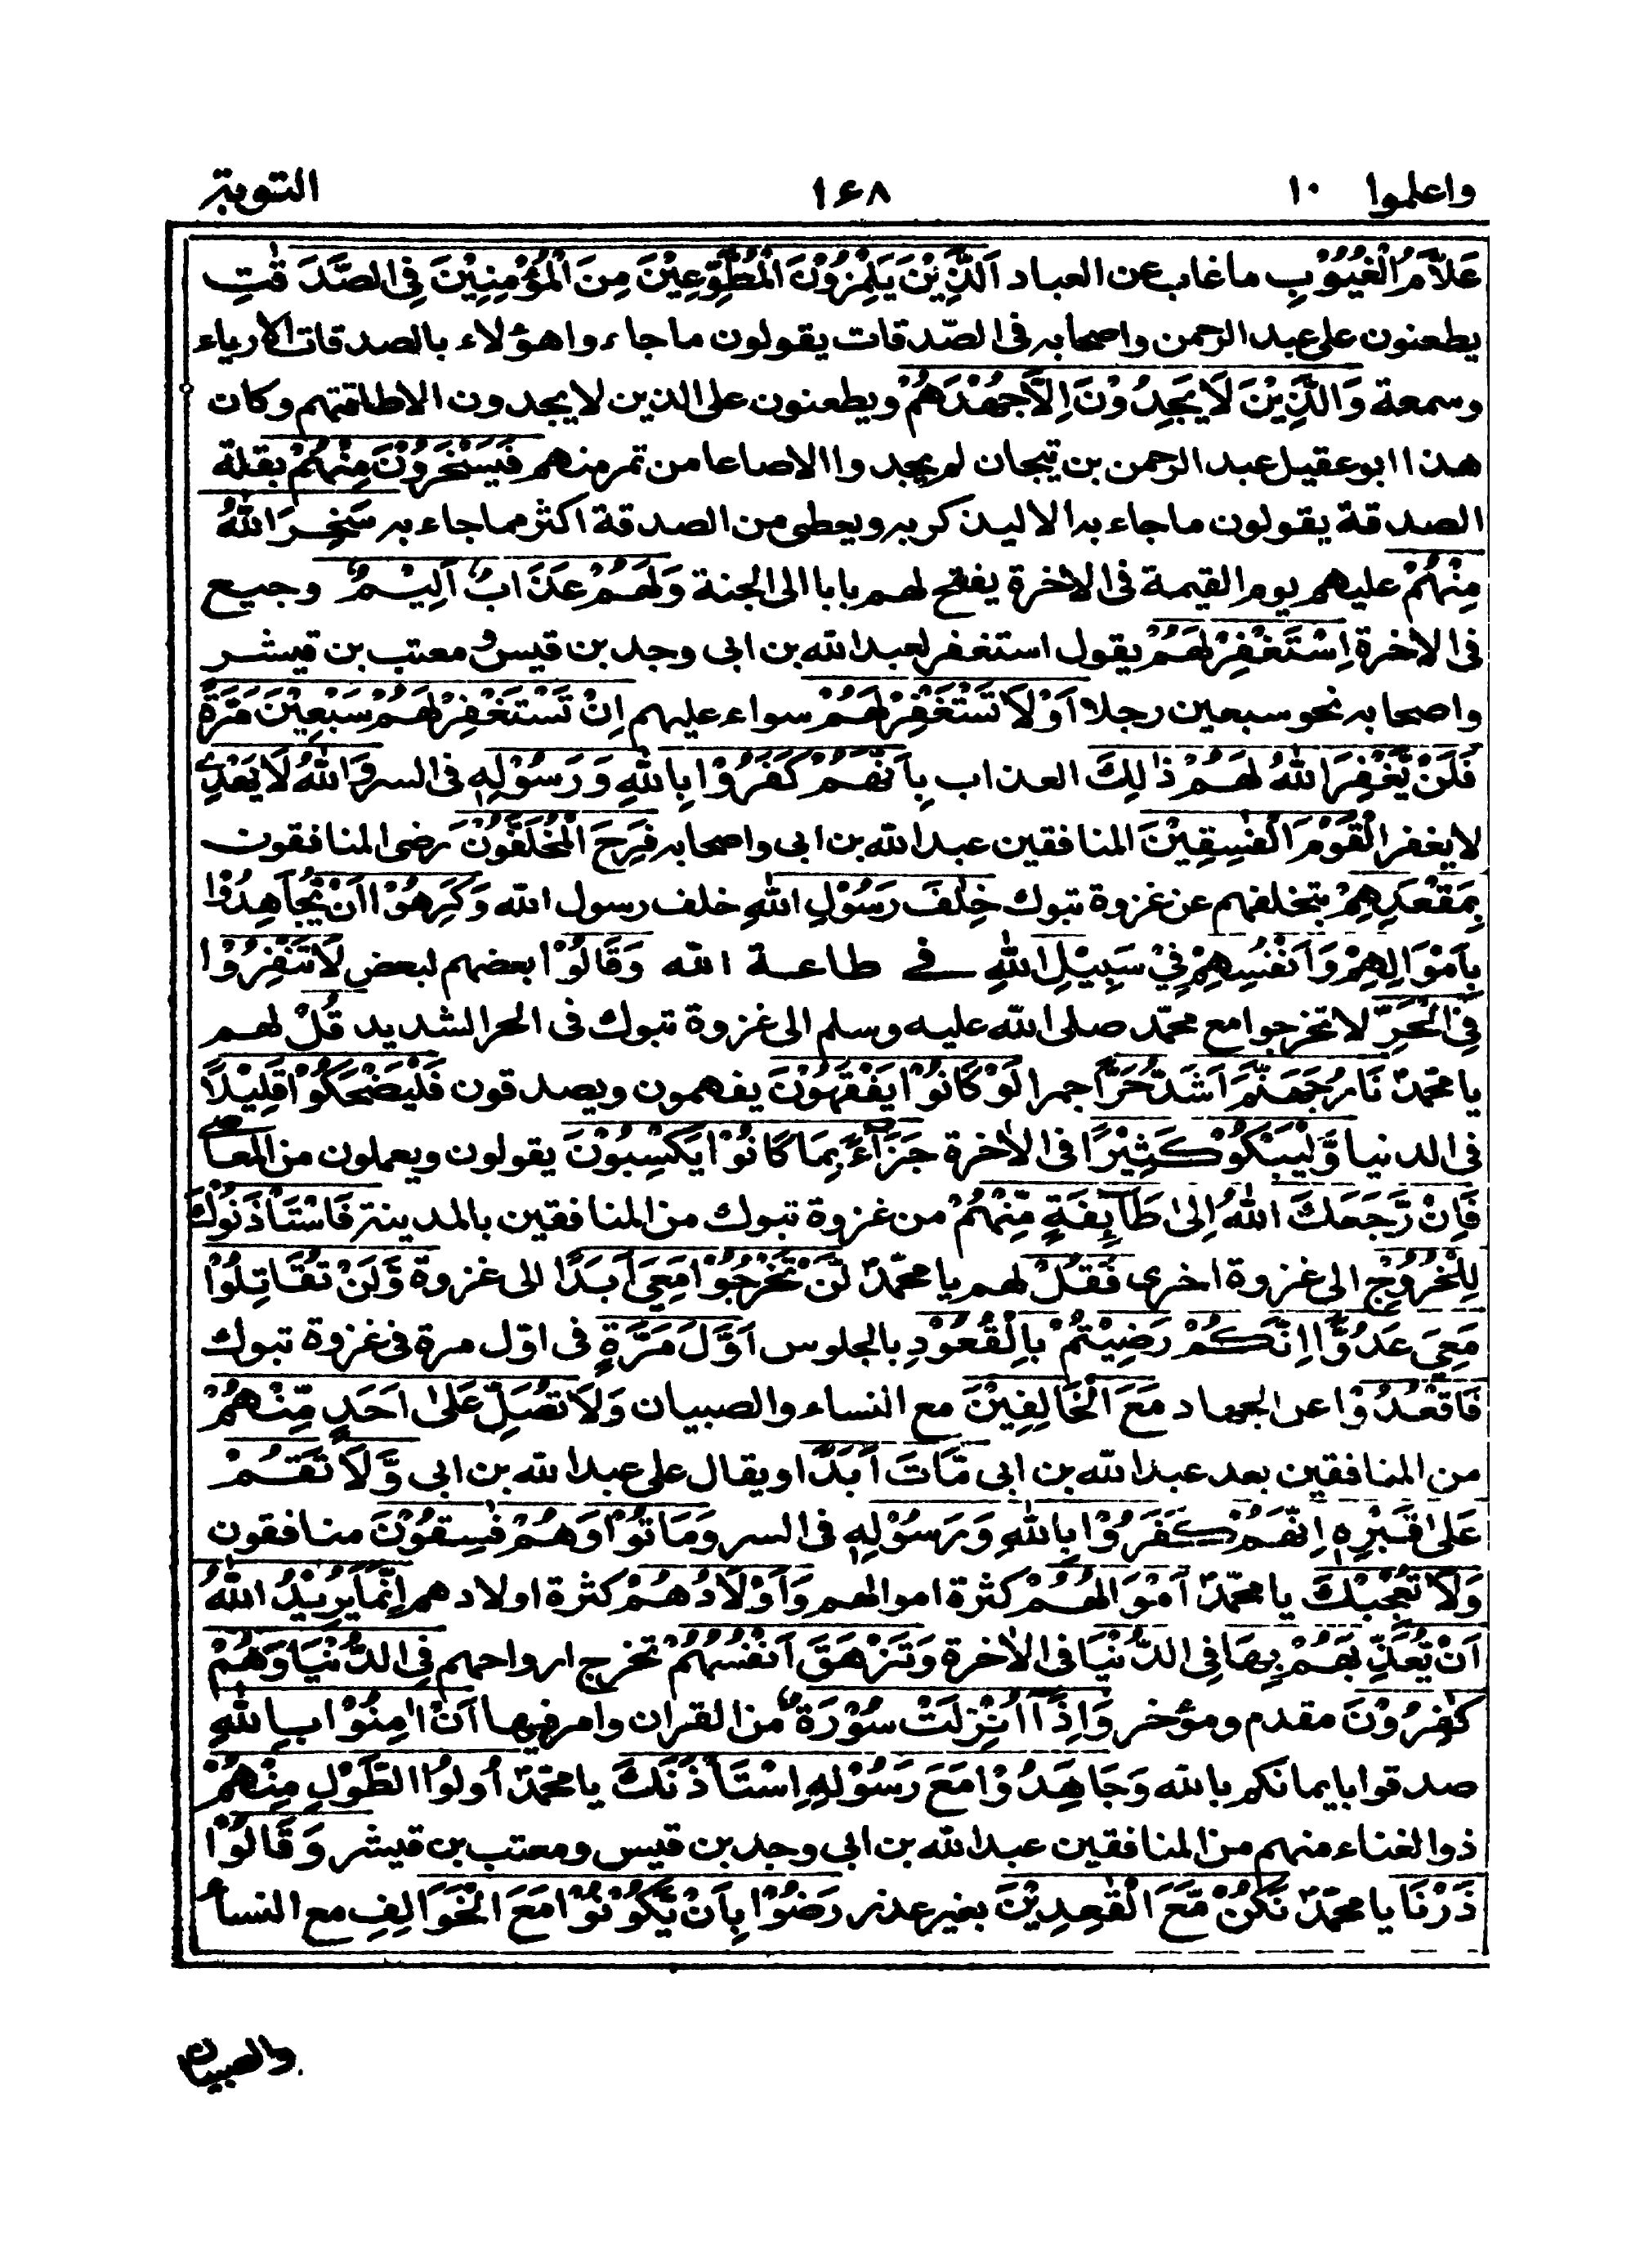 واعلموا ١٠ ١۶٨ التوبة
عَلَّامُ الْغُيُوْبِ ما غاب عن العباد اَلَّذِيْنَ يَلْمِزُوْنَ الْمُطَّوِّعِيْنَ مِنَ الْمُؤْمِنِيْنَ فِى الصَّدَقٰتِ
يطعنون على عبد الرحمن واصحابه فى الصّدقات يقولون ما جاء واهؤلاء بالصدقات الا رياء
وسمعة وَالَّذِيْنَ لَا يَجِدُوْنَ اِلَّا جُهْدَهُمْ ويطعنون على الذين لا يجدون الا طاقتهم وكان
هذا ابو عقيل عبد الرحمن بن تيجان لم يجدوا الا صاعا من تمر منهم فَيَسْخَرُوْنَ مِنْهُمْ بقلة
الصدقة يقولون ما جاء به الا ليذكر به ويعطى من الصدقة اكثر مما جاء به سَخِرَ اللّٰهُ
مِنْهُمْ عليهم يوم القيمة فى الاخرة يفتح لهم بابا الى الجنة وَلَهُمْ عَذَابٌ اَلِيْمٌ وجيع
فى الاخرة اِسْتَغْفِرْ لَهُمْ يقول استغفر لعبد الله بن ابى وجد بن قيس و معتب بن قيشر
واصحابه نحو سبعين رجلا اَوْ لَا تَسْتَغْفِرْ لَهُمْ سواء عليهم اِنْ تَسْتَغْفِرْ لَهُمْ سَبْعِيْنَ مَرَّةً
فَلَنْ يَّغْفِرَ اللّٰهُ لَهُمْ ذٰلِكَ العذاب بِاَنَّهُمْ كَفَرُوْا بِاللّٰهِ وَرَسُوْلِهٖ فى السر وَاللّٰهُ لَا يَهْدِى
لا يغفر الْقَوْمَ الْفٰسِقِيْنَ المنافقين عبد الله بن ابى واصحابه فَرِحَ الْمُخَلَّفُوْنَ رضى المنافقون
بِمَقْعَدِهِمْ بتخلفهم عن غزوة تبوك خِلٰفَ رَسُوْلِ اللّٰهِ خلف رسول الله وَكَرِهُوْا اَنْ يُّجَاهِدُوْا
بِاَمْوَالِهِمْ وَاَنْفُسِهِمْ فِيْ سَبِيْلِ اللّٰهِ فے طاعة الله وَقَالُوْا بعضهم لبعض لَا تَنْفِرُوْا
فِى الْحَرِّ لا تخرجوا مع محمّد صلى الله عليه وسلم الى غزوة تبوك فى الحر الشديد قُلْ لهم
يا محمّدٌ نَارُ جَهَنَّمَ اَشَدُّ حَرًّا جمرا لَوْ كَانُوْا يَفْقَهُوْنَ يفهمون ويصدقون فَلْيَضْحَكُوْا قَلِيْلًا
فى الدنيا وَّلْيَبْكُوْا كَثِيْرًا فى الاخرة جَزَآءً بِمَا كَانُوْا يَكْسِبُوْنَ يقولون ويعملون من المعاصے
فَاِنْ رَّجَعَكَ اللّٰهُ اِلٰى طَآئِفَةٍ مِّنْهُمْ من غزوة تبوك من المنافقين بالمدينة فَاسْتَاْذَنُوْكَ
لِلْخُرُوْجِ الى غزوة اخرى فَقُلْ لهم يا محمّدٌ لَّنْ تَخْرُجُوْا مَعِيَ اَبَدًا الى غزوة وَّلَنْ تُقَاتِلُوْا
مَعِيَ عَدُوًّا اِنَّكُمْ رَضِيْتُمْ بِالْقُعُوْدِ بالجلوس اَوَّلَ مَرَّةٍ فى اوّل مرة فى غزوة تبوك
فَاقْعُدُوْا عن الجهاد مَعَ الْخَالِفِيْنَ مع النساء والصبيان وَلَا تُصَلِّ عَلٰى اَحَدٍ مِّنْهُمْ
من المنافقين بعد عبد الله بن ابى مَّاتَ اَبَدًا ويقال على عبد الله بن ابى وَّلَا تَقُمْ
عَلٰى قَبْرِهٖ اِنَّهُمْ كَفَرُوْا بِاللّٰهِ وَرَسُوْلِهٖ فى السر وَمَاتُوْا وَهُمْ فٰسِقُوْنَ منافقون
وَلَا تُعْجِبْكَ يا محمّدٌ اَمْوَالُهُمْ كثرة اموالهم وَاَوْلَادُهُمْ كثرة اولادهم اِنَّمَا يُرِيْدُ اللّٰهُ
اَنْ يُّعَذِّبَهُمْ بِهَا فِى الدُّنْيَا فى الاخرة وَتَزْهَقَ اَنْفُسُهُمْ تخرج ارواحهم فِى الدُّنْيَا وَهُمْ
كٰفِرُوْنَ مقدم ومؤخر وَاِذَآ اُنْزِلَتْ سُوْرَةٌ من القران وامر فيها اَنْ اٰمِنُوْا بِاللّٰهِ
صدقوا بايمانكم بالله وَجَاهِدُوْا مَعَ رَسُوْلِهِ اسْتَاْذَنَكَ يا محمّدٌ اُولُوا الطَّوْلِ مِنْهُمْ
ذوا لغناء منهم من المنافقين عبد الله بن ابى وجد بن قيس ومعتب بن قيشر وَقَالُوْا
ذَرْنَا يا محمّدٌ نَكُنْ مَّعَ الْقٰعِدِيْنَ بغير عذر رَضُوْا بِاَنْ يَّكُوْنُوْا مَعَ الْخَوَالِفِ مع النساء
والصبيان